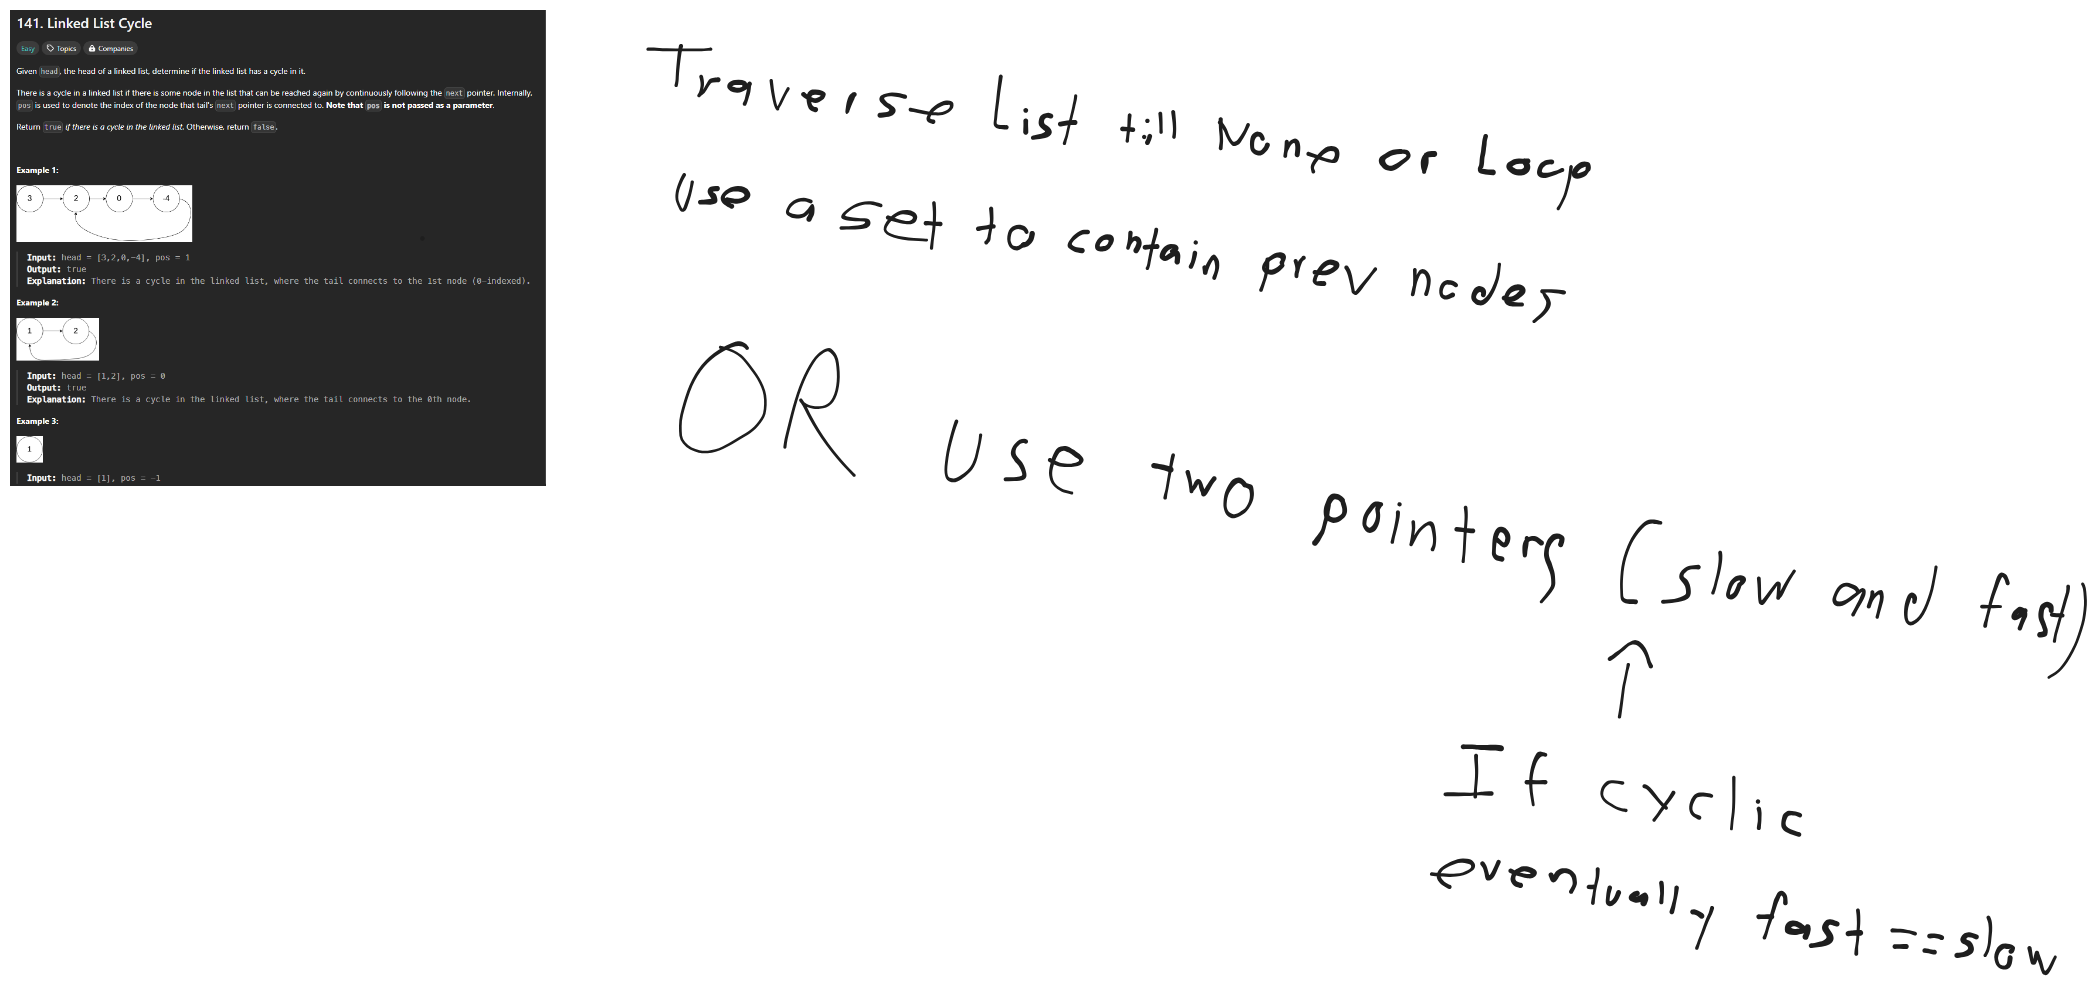 141. Linked List Cycle
Easy Topics Companies
Given head, the head of a linked list, determine if the linked list has a cycle in it.
There is a cycle in a linked list if there is some node in the list that can be reached again by continuously following the next pointer. Internally,
pos is used to denote the index of the node that tail's next pointer is connected to. Note that pos is not passed as a parameter.
Return true if there is a cycle in the linked list. Otherwise, return false.
Example 1:
3 2 0 -4
Input: head = [3,2,0,-4], pos = 1
Output: true
Explanation: There is a cycle in the linked list, where the tail connects to the 1st node (0-indexed).
Example 2:
1 2
Input: head = [1,2], pos = 0
Output: true
Explanation: There is a cycle in the linked list, where the tail connects to the 0th node.
Example 3:
1
Input: head = [1], pos = -1
Traverse List till None or Loop
Use a set to contain prev nodes
OR Use two pointers (slow and fast)
↑
If cyclic
eventually fast == slow